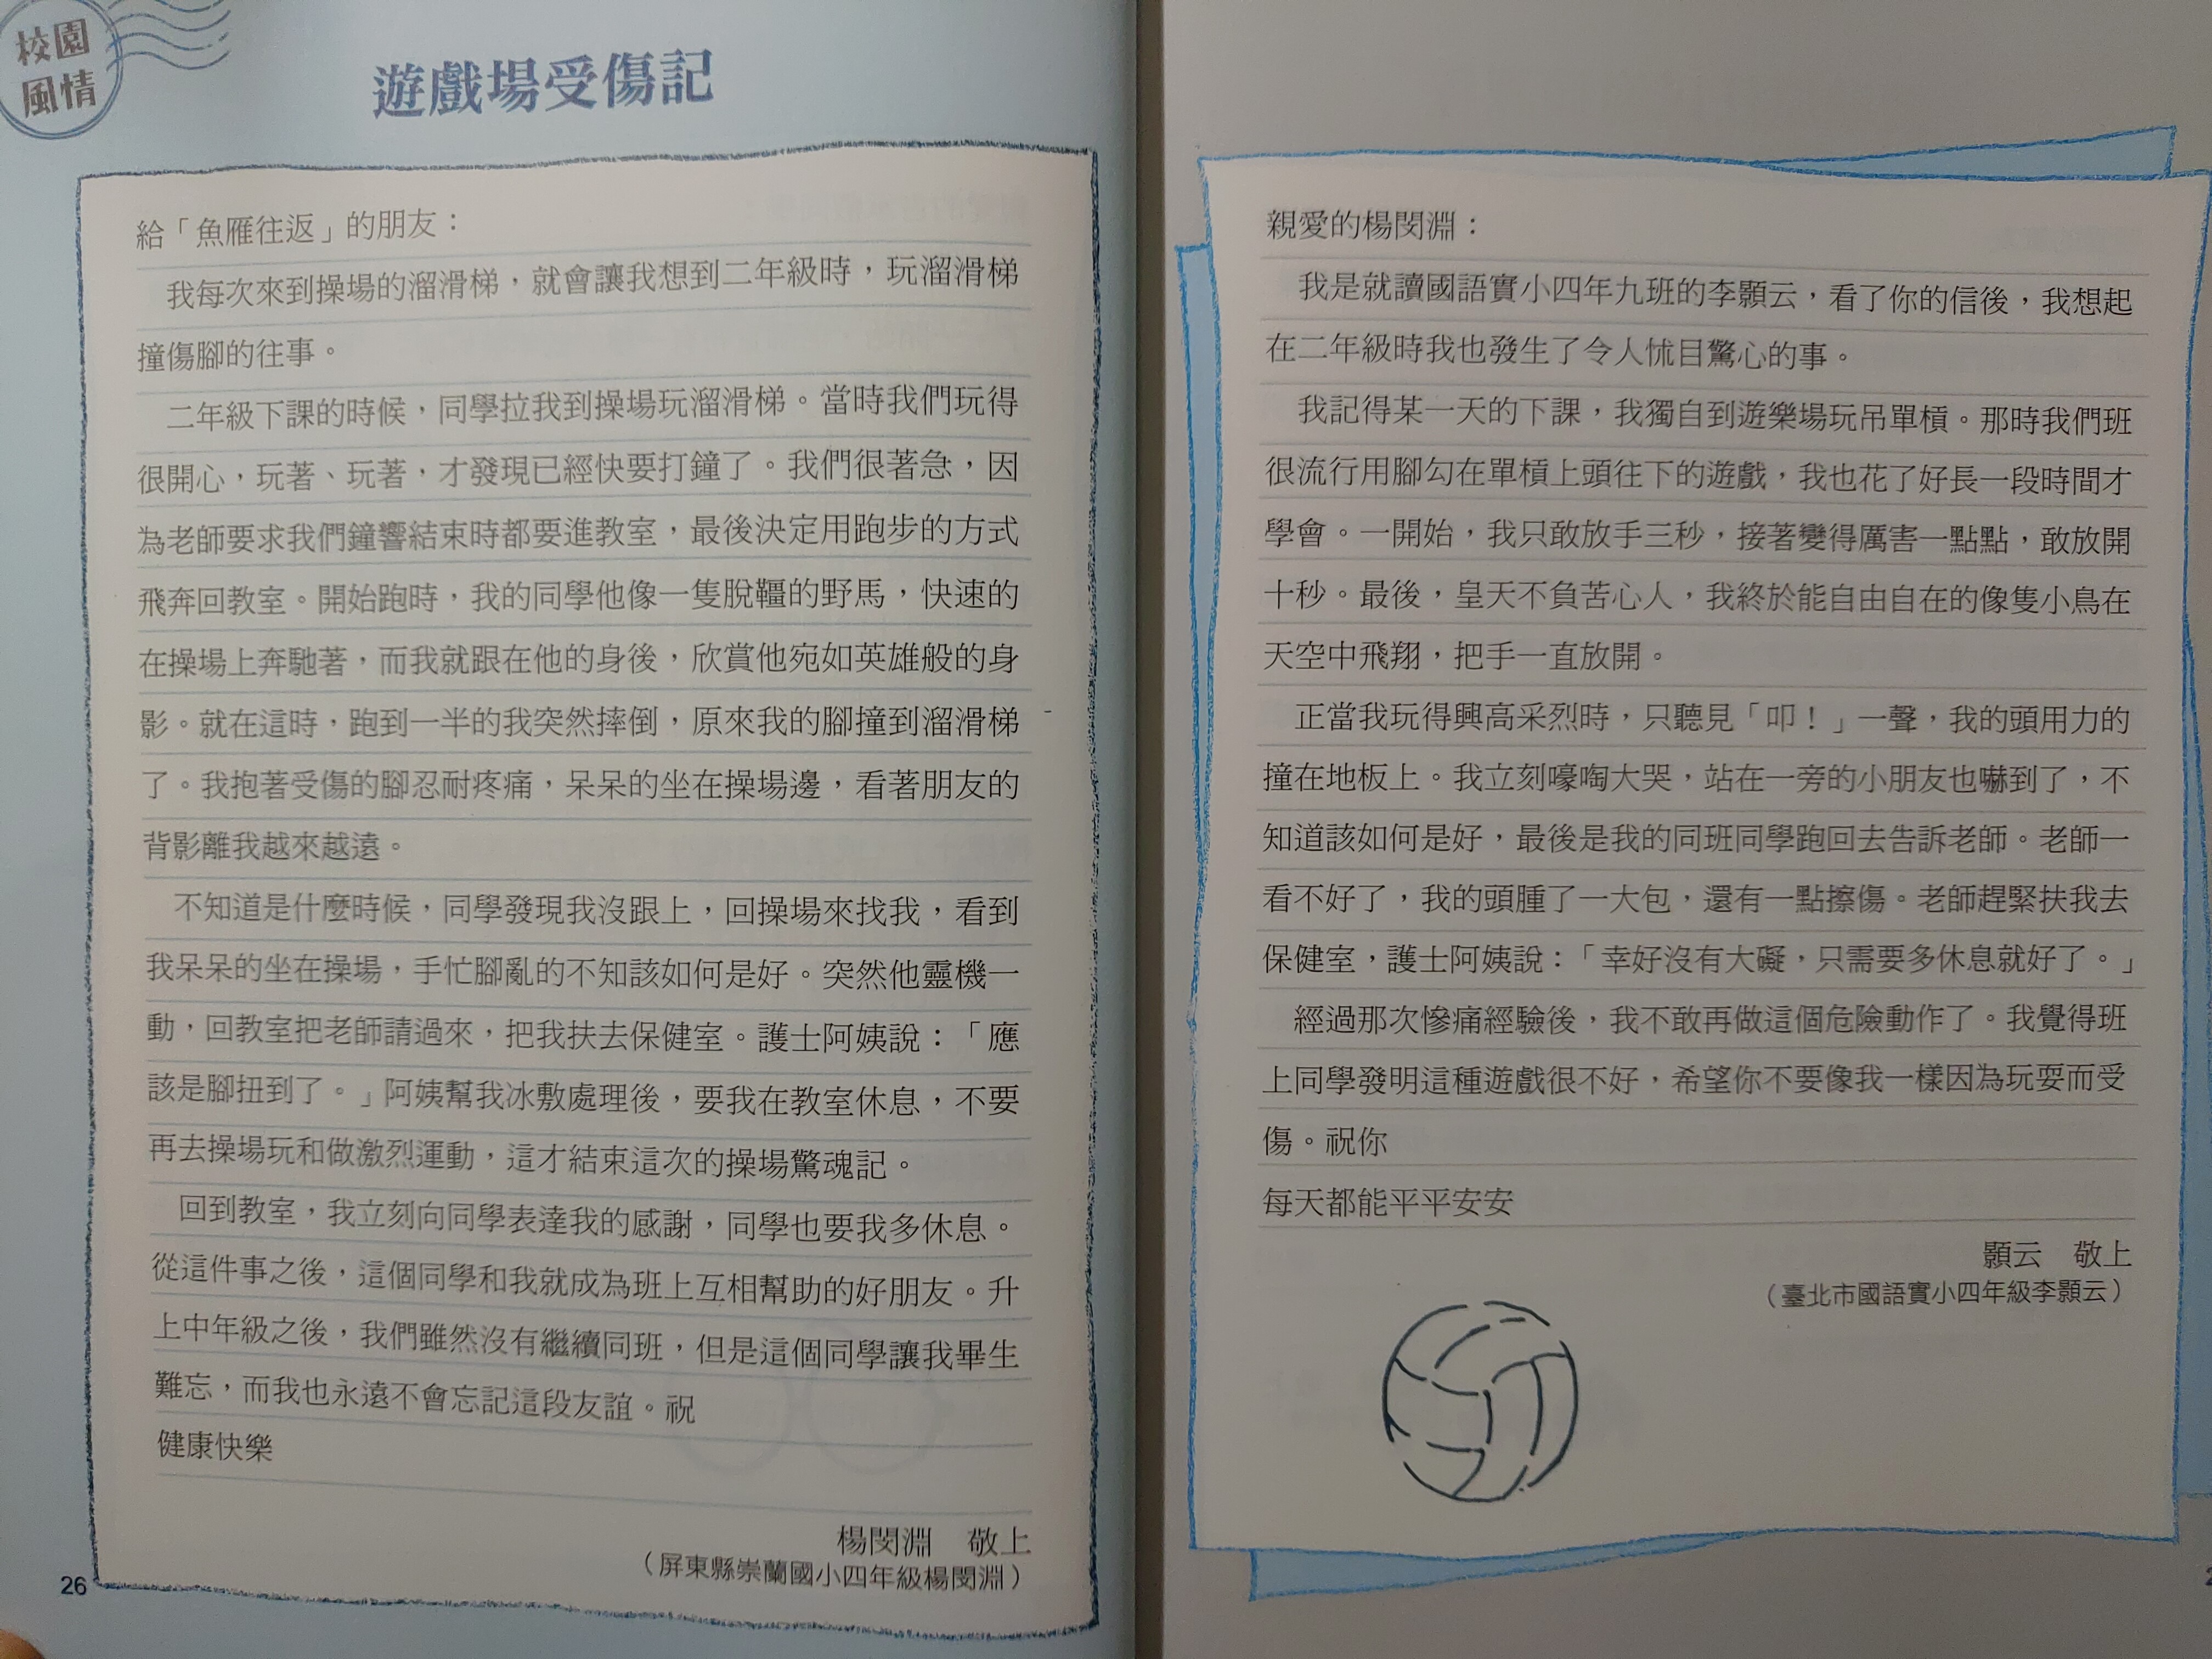 校園
風情
遊戲場受傷記
給「魚雁往返」的朋友：
我每次來到操場的溜滑梯，就會讓我想到二年級時，玩溜滑梯
撞傷腳的往事。
二年級下課的時候，同學拉我到操場玩溜滑梯。當時我們玩得
很開心，玩著、玩著，才發現已經快要打鐘了。我們很著急，因
為老師要求我們鐘響結束時都要進教室，最後決定用跑步的方式
飛奔回教室。開始跑時，我的同學他像一隻脫韁的野馬，快速的
在操場上奔馳著，而我就跟在他的身後，欣賞他宛如英雄般的身
影。就在這時，跑到一半的我突然摔倒，原來我的腳撞到溜滑梯
了。我抱著受傷的腳忍耐疼痛，呆呆的坐在操場邊，看著朋友的
背影離我越來越遠。
不知道是什麼時候，同學發現我沒跟上，回操場來找我，看到
我呆呆的坐在操場，手忙腳亂的不知該如何是好。突然他靈機一
動，回教室把老師請過來，把我扶去保健室。護士阿姨說：「應
該是腳扭到了。」阿姨幫我冰敷處理後，要我在教室休息，不要
再去操場玩和做激烈運動，這才結束這次的操場驚魂記。
回到教室，我立刻向同學表達我的感謝，同學也要我多休息。
從這件事之後，這個同學和我就成為班上互相幫助的好朋友。升
上中年級之後，我們雖然沒有繼續同班，但是這個同學讓我畢生
難忘，而我也永遠不會忘記這段友誼。祝
健康快樂
楊閔淵　敬上
（屏東縣崇蘭國小四年級楊閔淵）
26
親愛的楊閔淵：
我是就讀國語實小四年九班的李顥云，看了你的信後，我想起
在二年級時我也發生了令人怵目驚心的事。
我記得某一天的下課，我獨自到遊樂場玩吊單槓。那時我們班
很流行用腳勾在單槓上頭往下的遊戲，我也花了好長一段時間才
學會。一開始，我只敢放手三秒，接著變得厲害一點點，敢放開
十秒。最後，皇天不負苦心人，我終於能自由自在的像隻小鳥在
天空中飛翔，把手一直放開。
正當我玩得興高采烈時，只聽見「叩！」一聲，我的頭用力的
撞在地板上。我立刻嚎啕大哭，站在一旁的小朋友也嚇到了，不
知道該如何是好，最後是我的同班同學跑回去告訴老師。老師一
看不好了，我的頭腫了一大包，還有一點擦傷。老師趕緊扶我去
保健室，護士阿姨說：「幸好沒有大礙，只需要多休息就好了。」
經過那次慘痛經驗後，我不敢再做這個危險動作了。我覺得班
上同學發明這種遊戲很不好，希望你不要像我一樣因為玩耍而受
傷。祝你
每天都能平平安安
顥云　敬上
（臺北市國語實小四年級李顥云）